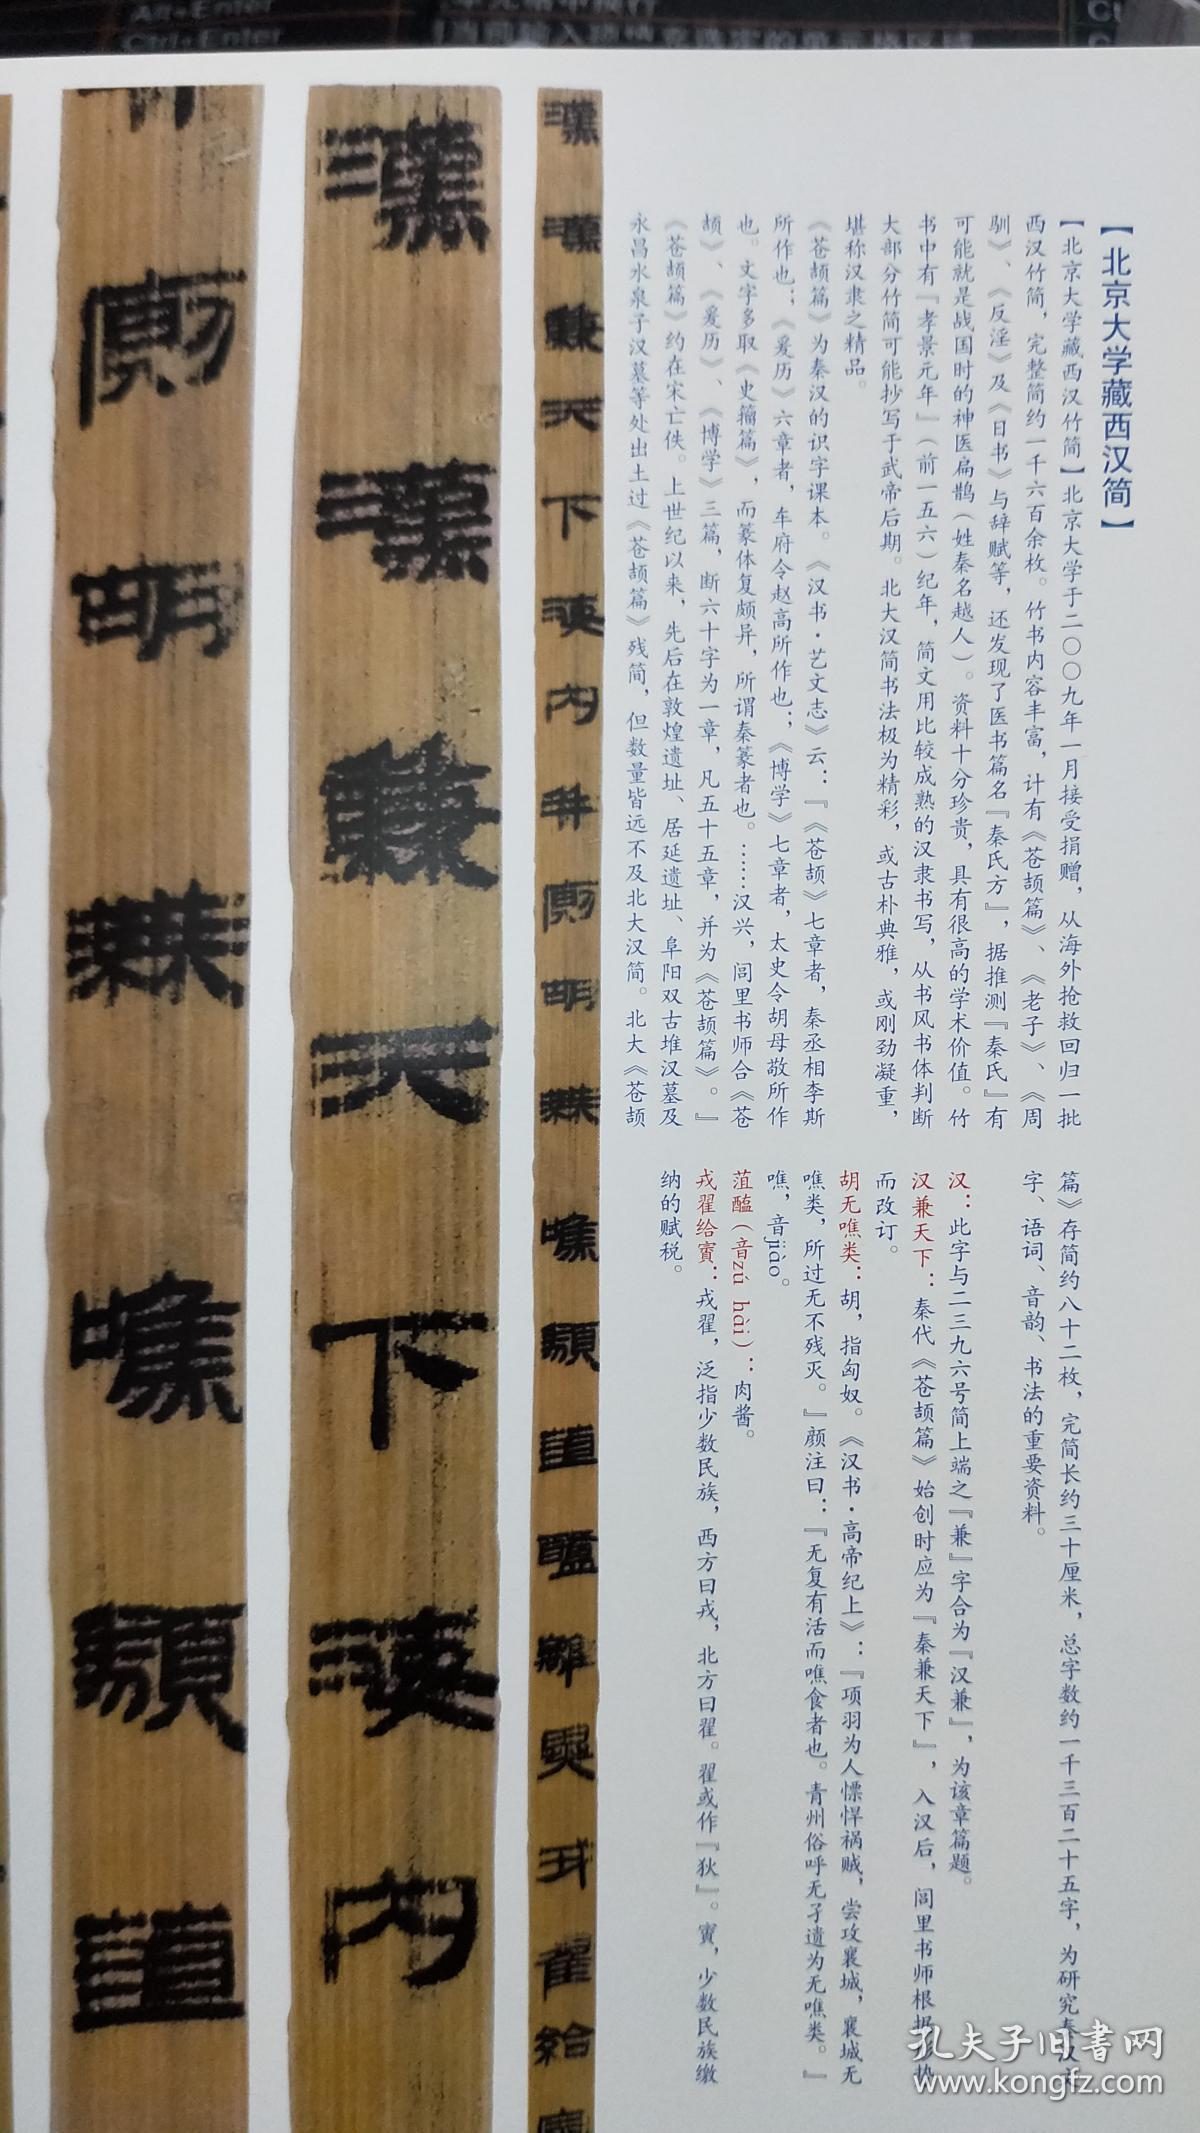 Alt+Enter
Ctrl+Enter
【北京大学藏西汉简】
【北京大学藏西汉竹简】北京大学于二〇〇九年一月接受捐赠，从海外抢救回归一批
西汉竹简，完整简约一千六百余枚。竹书内容丰富，计有《苍颉篇》、《老子》、《周
驯》、《反淫》及《日书》与辞赋等，还发现了医书篇名『秦氏方』，据推测『秦氏』有
可能就是战国时的神医扁鹊（姓秦名越人）。资料十分珍贵，具有很高的学术价值。竹
书中有『孝景元年』（前一五六）纪年，简文用比较成熟的汉隶书写，从书风书体判断
大部分竹简可能抄写于武帝后期。北大汉简书法极为精彩，或古朴典雅，或刚劲凝重，
堪称汉隶之精品。
《苍颉篇》为秦汉的识字课本。《汉书·艺文志》云：『《苍颉》七章者，秦丞相李斯
所作也；《爰历》六章者，车府令赵高所作也；《博学》七章者，太史令胡母敬所作
也。文字多取《史籀篇》，而篆体复颇异，所谓秦篆者也。……汉兴，闾里书师合《苍
颉》、《爰历》、《博学》三篇，断六十字为一章，凡五十五章，并为《苍颉篇》。』
《苍颉篇》约在宋亡佚。上世纪以来，先后在敦煌遗址、居延遗址、阜阳双古堆汉墓及
永昌水泉子汉墓等处出土过《苍颉篇》残简，但数量皆远不及北大汉简。北大《苍颉
篇》存简约八十二枚，完简长约三十厘米，总字数约一千三百二十五字，为研究秦汉文
字、语词、音韵、书法的重要资料。
汉：此字与二三九六号简上端之『兼』字合为『汉兼』，为该章篇题。
汉兼天下：秦代《苍颉篇》始创时应为『秦兼天下』，入汉后，闾里书师根据形势
而改订。
胡无噍类：胡，指匈奴。《汉书·高帝纪上》：『项羽为人慓悍祸贼，尝攻襄城，襄城无
噍类，所过无不残灭。』颜注曰：『无复有活而噍食者也。青州俗呼无孑遗为无噍类。』
噍，音jiào。
菹醢（音zú hǎi）：肉酱。
戎翟给賨：戎翟，泛指少数民族，西方曰戎，北方曰翟。翟或作『狄』。賨，少数民族缴
纳的赋税。
漢
漢兼天下海内并廁胡無噍類菹醢離異戎翟給賨
漢漢兼天下海内
廁胡無噍類菹
孔夫子旧书网
www.kongfz.com